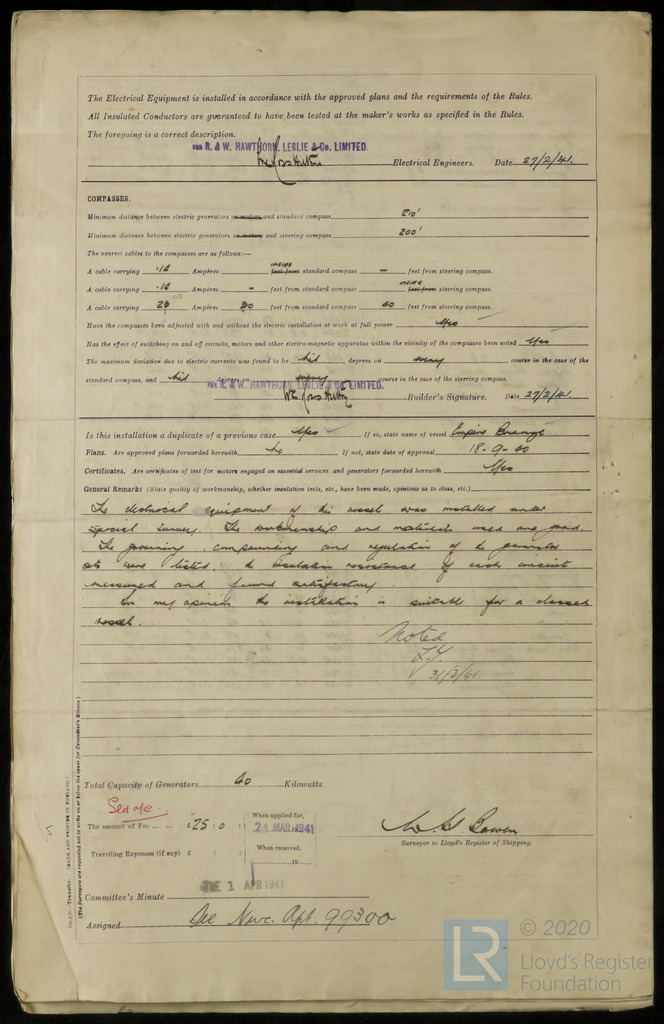 The Electrical Equipment is installed in accordance with the approved plans and the requirements of the Rules.
All Insulated Conductors are guaranteed to have been tested at the maker's works as specified in the Rules.
The foregoing is a correct description.
FOR R. & W. HAWTHORN, LESLIE & Co. LIMITED.
Electrical Engineers. Date 27/2/41.
COMPASSES.
Minimum distance between electric generators or motors and standard compass 210'
Minimum distance between electric generators or motors and steering compass 200'
The nearest cables to the compasses are as follows:—
A cable carrying .14 Ampères inside feet from standard compass — feet from steering compass.
A cable carrying .14 Ampères — feet from standard compass inside feet from steering compass.
A cable carrying Ampères 30 feet from standard compass 40 feet from steering compass.
Have the compasses been adjusted with and without the electric installation at work at full power Yes
Has the effect of switching on and off circuits, motors and other electro-magnetic apparatus within the vicinity of the compasses been noted Yes
The maximum deviation due to electric currents was found to be Nil degrees on every course in the case of the
standard compass, and Nil degrees on every course in the case of the steering compass.
FOR R. & W. HAWTHORN, LESLIE & Co. LIMITED.
Builder's Signature. Date 27/2/41.
Is this installation a duplicate of a previous case Yes If so, state name of vessel Empire
Plans. Are approved plans forwarded herewith No If not, state date of approval 18-9-40
Certificates. Are certificates of test for motors engaged on essential services and generators forwarded herewith Yes
General Remarks (State quality of workmanship, whether insulation tests, etc., have been made, opinions as to class, etc.)
The electrical equipment of this vessel was installed under
Special Survey. The workmanship and materials used are good.
The governing, compounding and regulation of the generator
sets were tested, the insulation resistance of each circuit
measured and found satisfactory
In my opinion the installation is suitable for a classed
vessel.
Noted
31/3/41
Total Capacity of Generators 40 Kilowatts.
The amount of Fee ... ... £25 : 0 :
When applied for,
24 MAR 1941
Surveyor to Lloyd's Register of Shipping.
Travelling Expenses (if any) £ : :
When received.
19
Committee's Minute TUE 1 APR 1941
Assigned See Nwc. Rpt. 99300
(MADE AND PRINTED IN ENGLAND.)
(The Surveyors are requested not to write on or below the space for Committee's Minute.)
LR © 2020
Lloyd's Register
Foundation